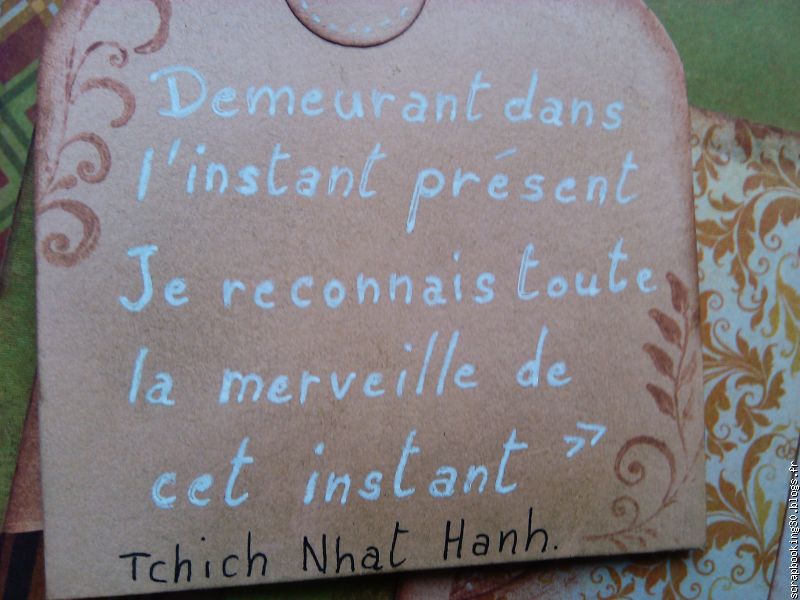 Demeurant dans
l'instant présent
Je reconnais toute
la merveille de
cet instant »
Tchich Nhat Hanh.
scrapbooking30.blogs.fr